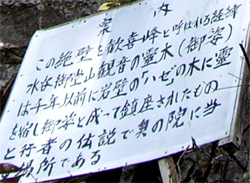 案内
この絶壁を歓喜峰と呼ばれる経緯
水谷御堂山観音の霊木(御姿)
は千年以前に岩壁の「いぜの木に霊
し御姿と成って鎮座されたもの
と行者の伝説で奥の院に当
場所である